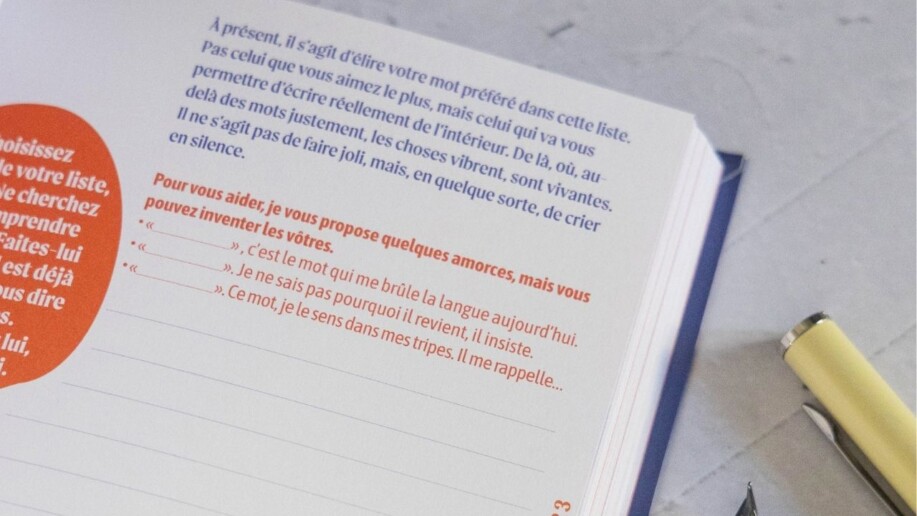 À présent, il s'agît d'élire votre mot préféré dans cette liste.
Pas celui que vous aimez le plus, mais celui qui va vous
permettre d'écrire réellement de l'intérieur. De là, où, au-
delà des mots justement, les choses vibrent, sont vivantes.
Il ne s'agît pas de faire joli, mais, en quelque sorte, de crier
en silence.
Pour vous aider, je vous propose quelques amorces, mais vous
pouvez inventer les vôtres.
• «__________», c'est le mot qui me brûle la langue aujourd'hui.
• «__________». Je ne sais pas pourquoi il revient, il insiste.
• «__________». Ce mot, je le sens dans mes tripes. Il me rappelle...
de votre liste,
cherchez
Faites-lui
est déjà
dire
lui,
3